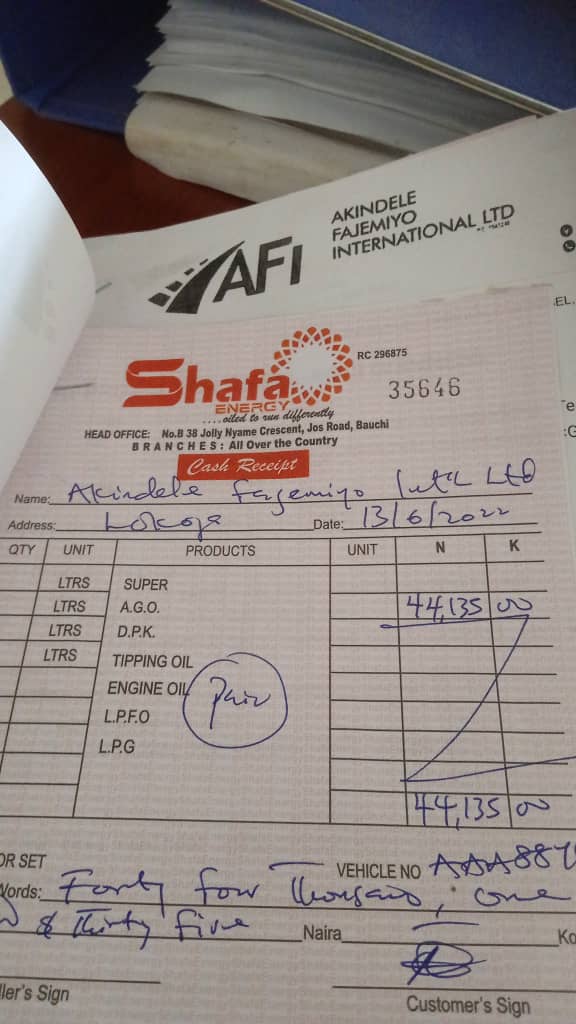 AKINDELE
FAJEMIYO
INTERNATIONAL LTD
AFI
RC 296875
Shafa
ENERGY
35646
....oiled to run differently
HEAD OFFICE: No.B 38 Jolly Nyame Crescent, Jos Road, Bauchi
BRANCHES: All Over the Country
Cash Receipt
Name: Akindele Fajemiyo Int'l Ltd
Address: Lokoja Date: 13/6/2022
QTY UNIT PRODUCTS UNIT N K
LTRS SUPER
LTRS A.G.O. 44,135 00
LTRS D.P.K.
LTRS TIPPING OIL
ENGINE OIL Paid
L.P.F.O
L.P.G
44,135 00
OR SET VEHICLE NO AAA 887
Words: Forty four Thousand, one
& Thirty five Naira Ko
ller's Sign Customer's Sign